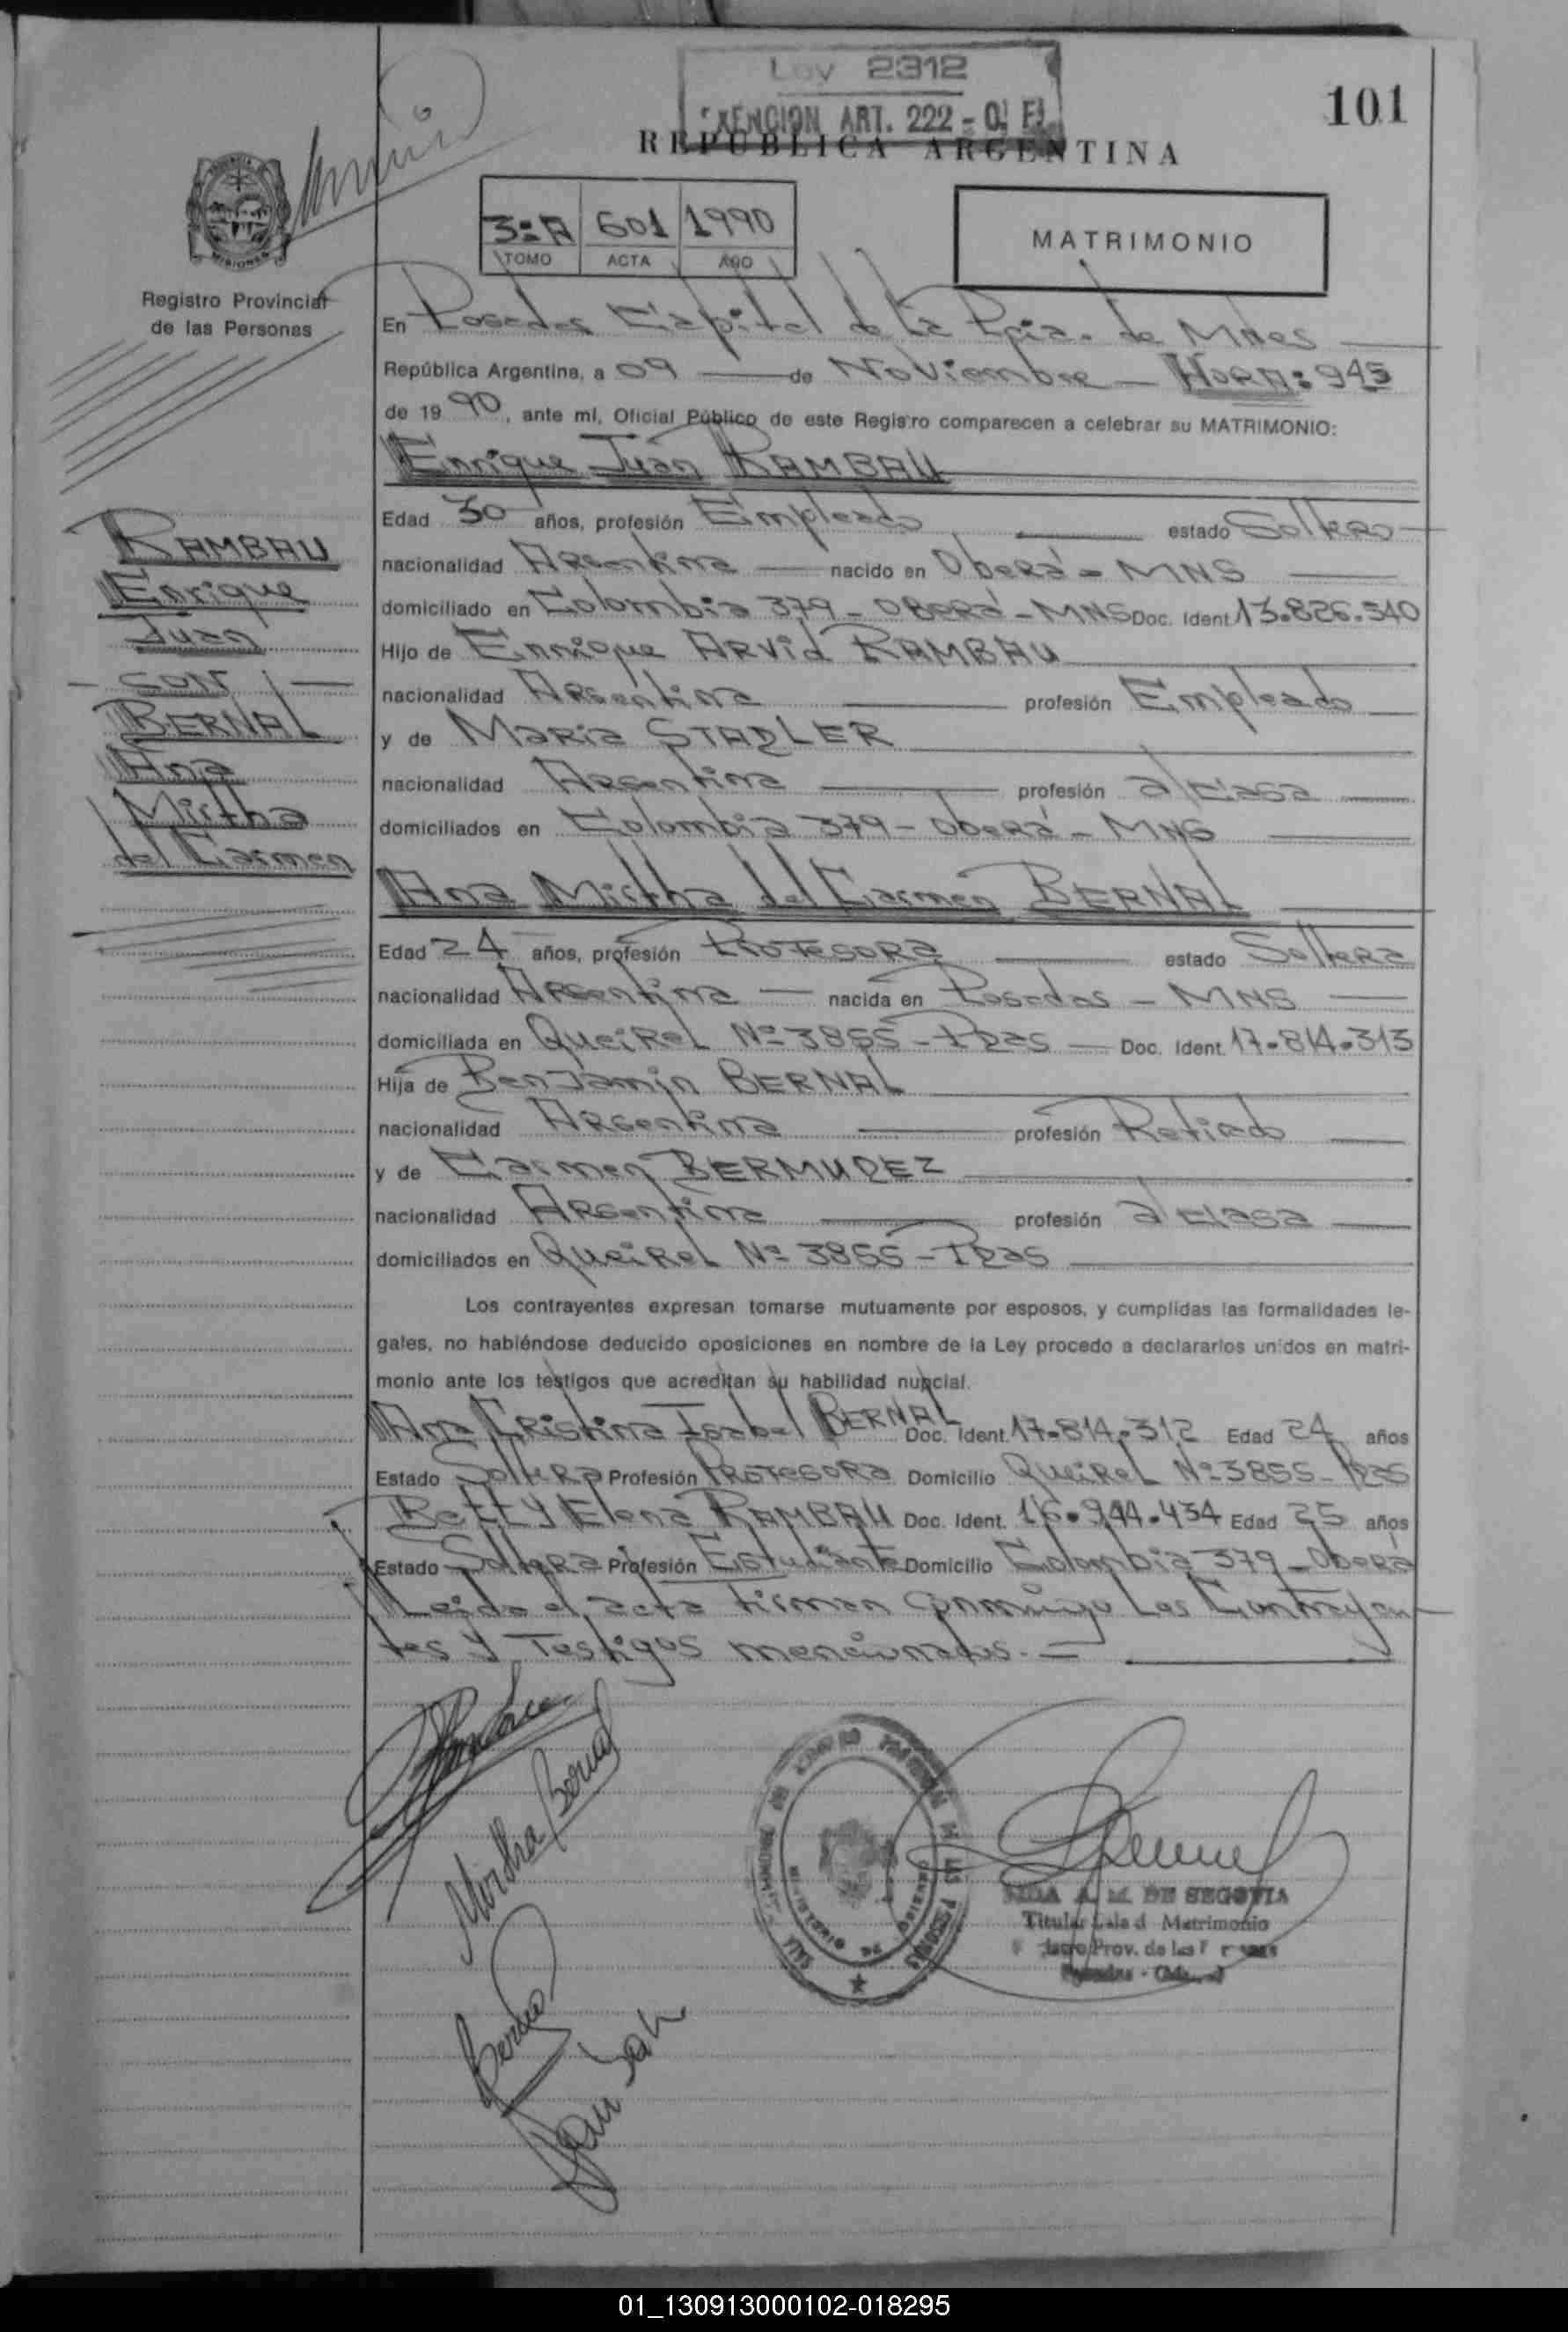 Ley 2312
EXENCION ART. 222 - O. F.
101
REPUBLICA ARGENTINA
3º A 601 1990
TOMO ACTA AÑO
MATRIMONIO
MISIONES
Registro Provincial
de las Personas
En Posadas Capital de la Pcia. de Mnes
República Argentina, a 09 de Noviembre - HORA: 945
de 1990, ante mí, Oficial Público de este Registro comparecen a celebrar su MATRIMONIO:
Enrique Juan RAMBAU
Edad 30 años, profesión Empleado estado Soltero
nacionalidad Argentina nacido en Oberá - MNS
domiciliado en Colombia 379 - Oberá - MNS Doc. Ident. 13.826.340
Hijo de Enrique Arvid RAMBAU
nacionalidad Argentina profesión Empleado
y de Maria STADLER
nacionalidad Argentina profesión a/casa
domiciliados en Colombia 379 - Oberá - MNS
RAMBAU
Enrique
Juan
- con -
BERNAL
Ana
Mirtha
del Carmen
Ana Mirtha del Carmen BERNAL
Edad 24 años, profesión Profesora estado Soltera
nacionalidad Argentina nacida en Posadas - MNS
domiciliada en Queirel Nº 3855 - Pdas Doc. Ident. 17.814.313
Hija de Benjamin BERNAL
nacionalidad Argentina profesión Retirado
y de Carmen BERMUDEZ
nacionalidad Argentina profesión a/casa
domiciliados en Queirel Nº 3855 - Pdas
Los contrayentes expresan tomarse mutuamente por esposos, y cumplidas las formalidades le-
gales, no habiéndose deducido oposiciones en nombre de la Ley procedo a declararlos unidos en matri-
monio ante los testigos que acreditan su habilidad nupcial.
Ana Cristina Isabel BERNAL Doc. Ident. 17.814.312 Edad 24 años
Estado Soltera Profesión Profesora Domicilio Queirel Nº 3855 - Pdas
Betty Elena RAMBAU Doc. Ident. 16.944.434 Edad 25 años
Estado Soltera Profesión Estudiante Domicilio Colombia 379 - Oberá
Leida el acta firman conmigo los Contrayen-
tes y Testigos mencionados. -
Mirtha Bernal
A. M. DE SEGOVIA
Titular Sala d Matrimonio
Prov. de las
01_130913000102-018295